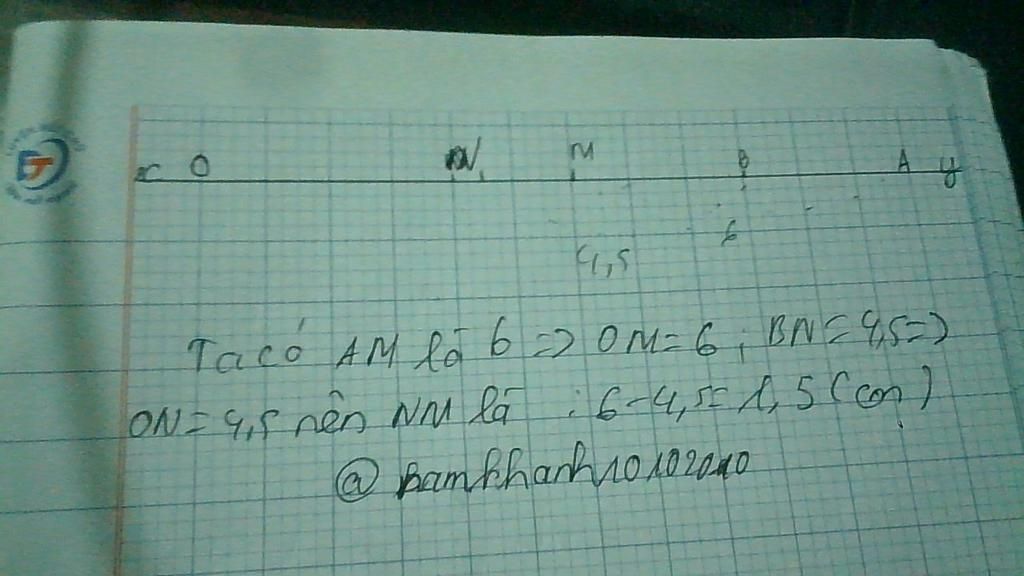 x O N M B A y
6
4,5
Ta có AM là 6 => OM = 6 ; BN = 4,5 =>
ON = 4,5 nên NM là : 6 - 4,5 = 1,5 (cm)